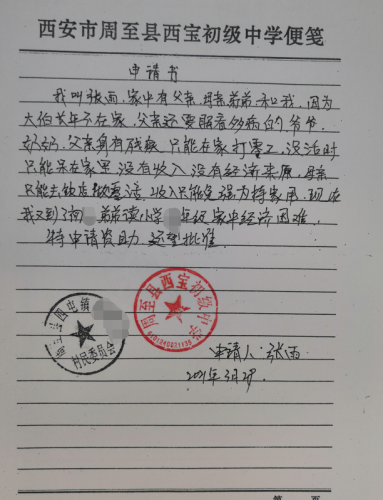 西安市周至县西宝初级中学便笺
申请书
我叫张雨,家中有父亲、母亲、弟弟和我,因为
大伯长年不在家,父亲还要照看多病的爷爷、
奶奶。父亲身有残疾 只能在家打零工,没活时
只能呆在家里 没有收入 没有经济来源,母亲
只能去饭店做零活,收入只能勉强为持家用。现在
我又到了初 弟弟读小学 年级 家中经济困难。
特申请资助 望批准。
周至县西宝初级中学
周至县四屯镇
村民委员会
申请人:张雨
2021年3月2日
第 页